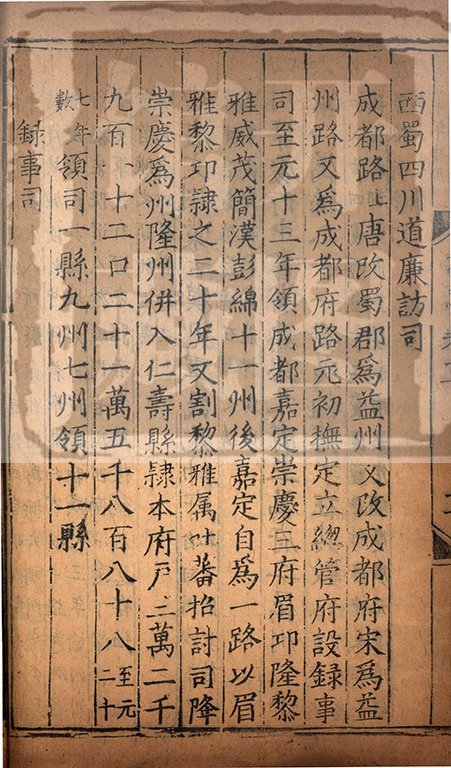 西蜀四川道廉訪司
成都路上唐改蜀郡爲益州又改成都府宋爲益
州路又爲成都府路元初撫定立緫管府設録事
司至元十三年領成都嘉定崇慶三府眉邛隆黎
雅威茂簡漢彭綿十一州後嘉定自爲一路以眉
雅黎邛隷之二十年又割黎雅属吐蕃招討司降
崇慶爲州隆州併入仁壽縣隷本府户三萬二千
九百一十二口二十一萬五千八百八十八至元二十
七年數領司一縣九州七州領十一縣
録事司